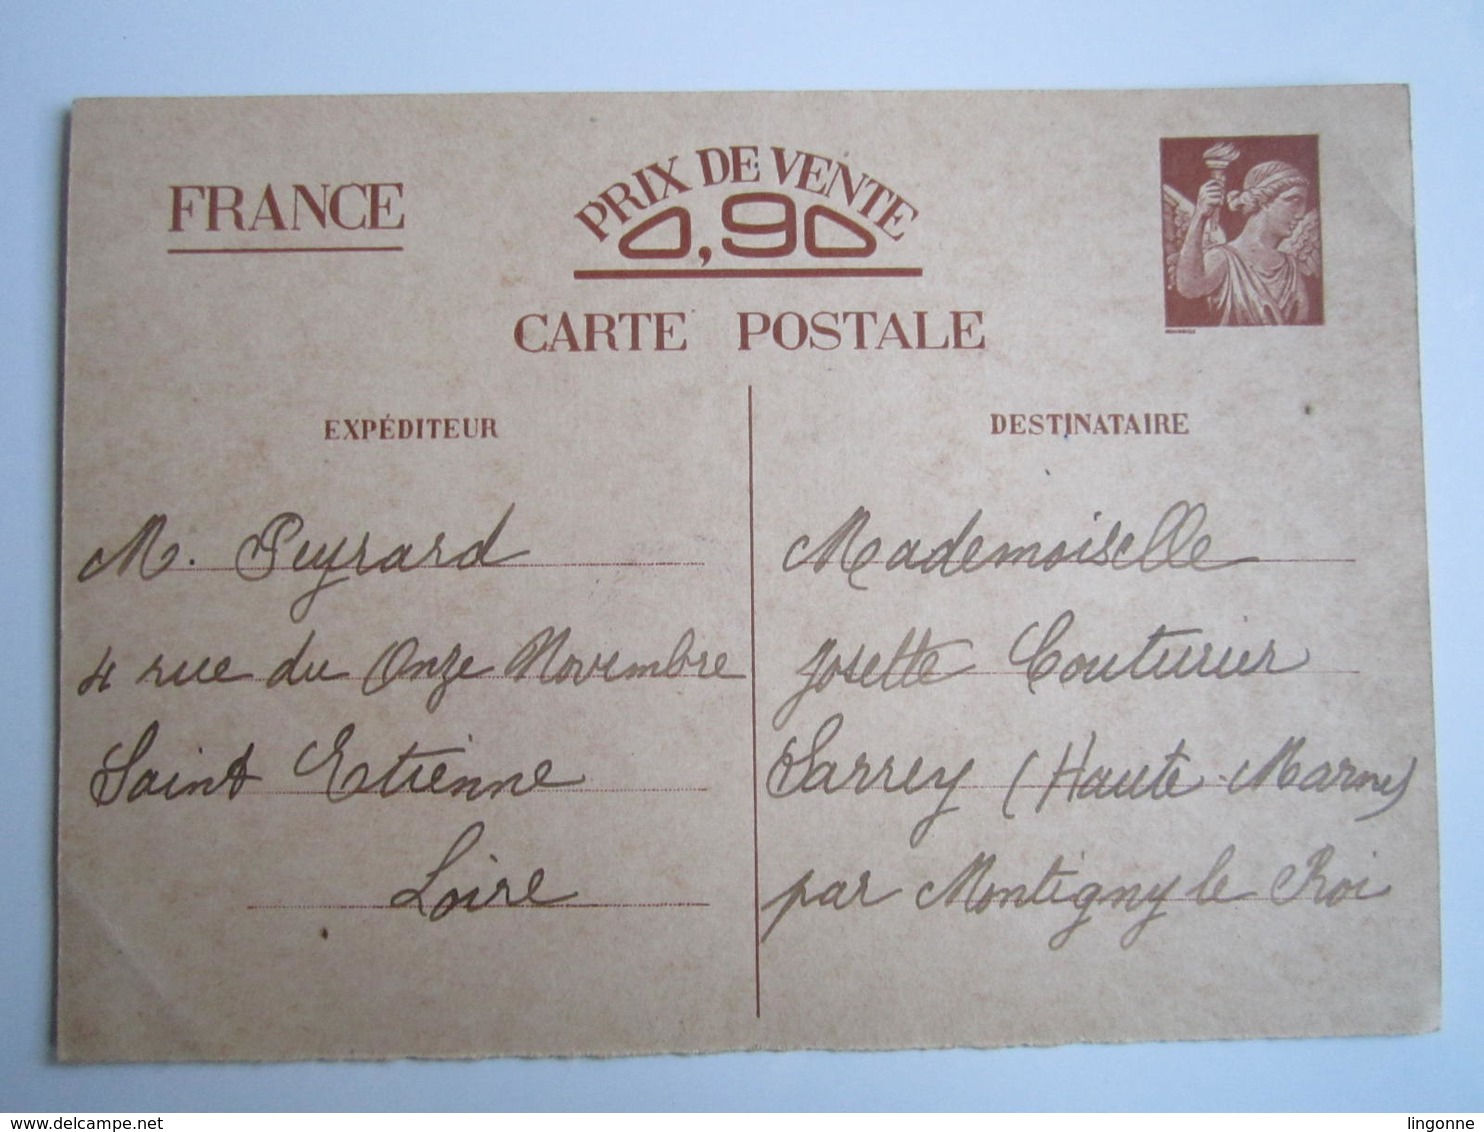 FRANCE
PRIX DE VENTE
0,90
CARTE POSTALE
EXPÉDITEUR
M. Peyrard
4 rue du Onze Novembre
Saint Etienne
Loire
DESTINATAIRE
Mademoiselle
Josette Couturier
Sarrey (Haute-Marne)
par Montigny le Roi
delcampe.net
lingonne